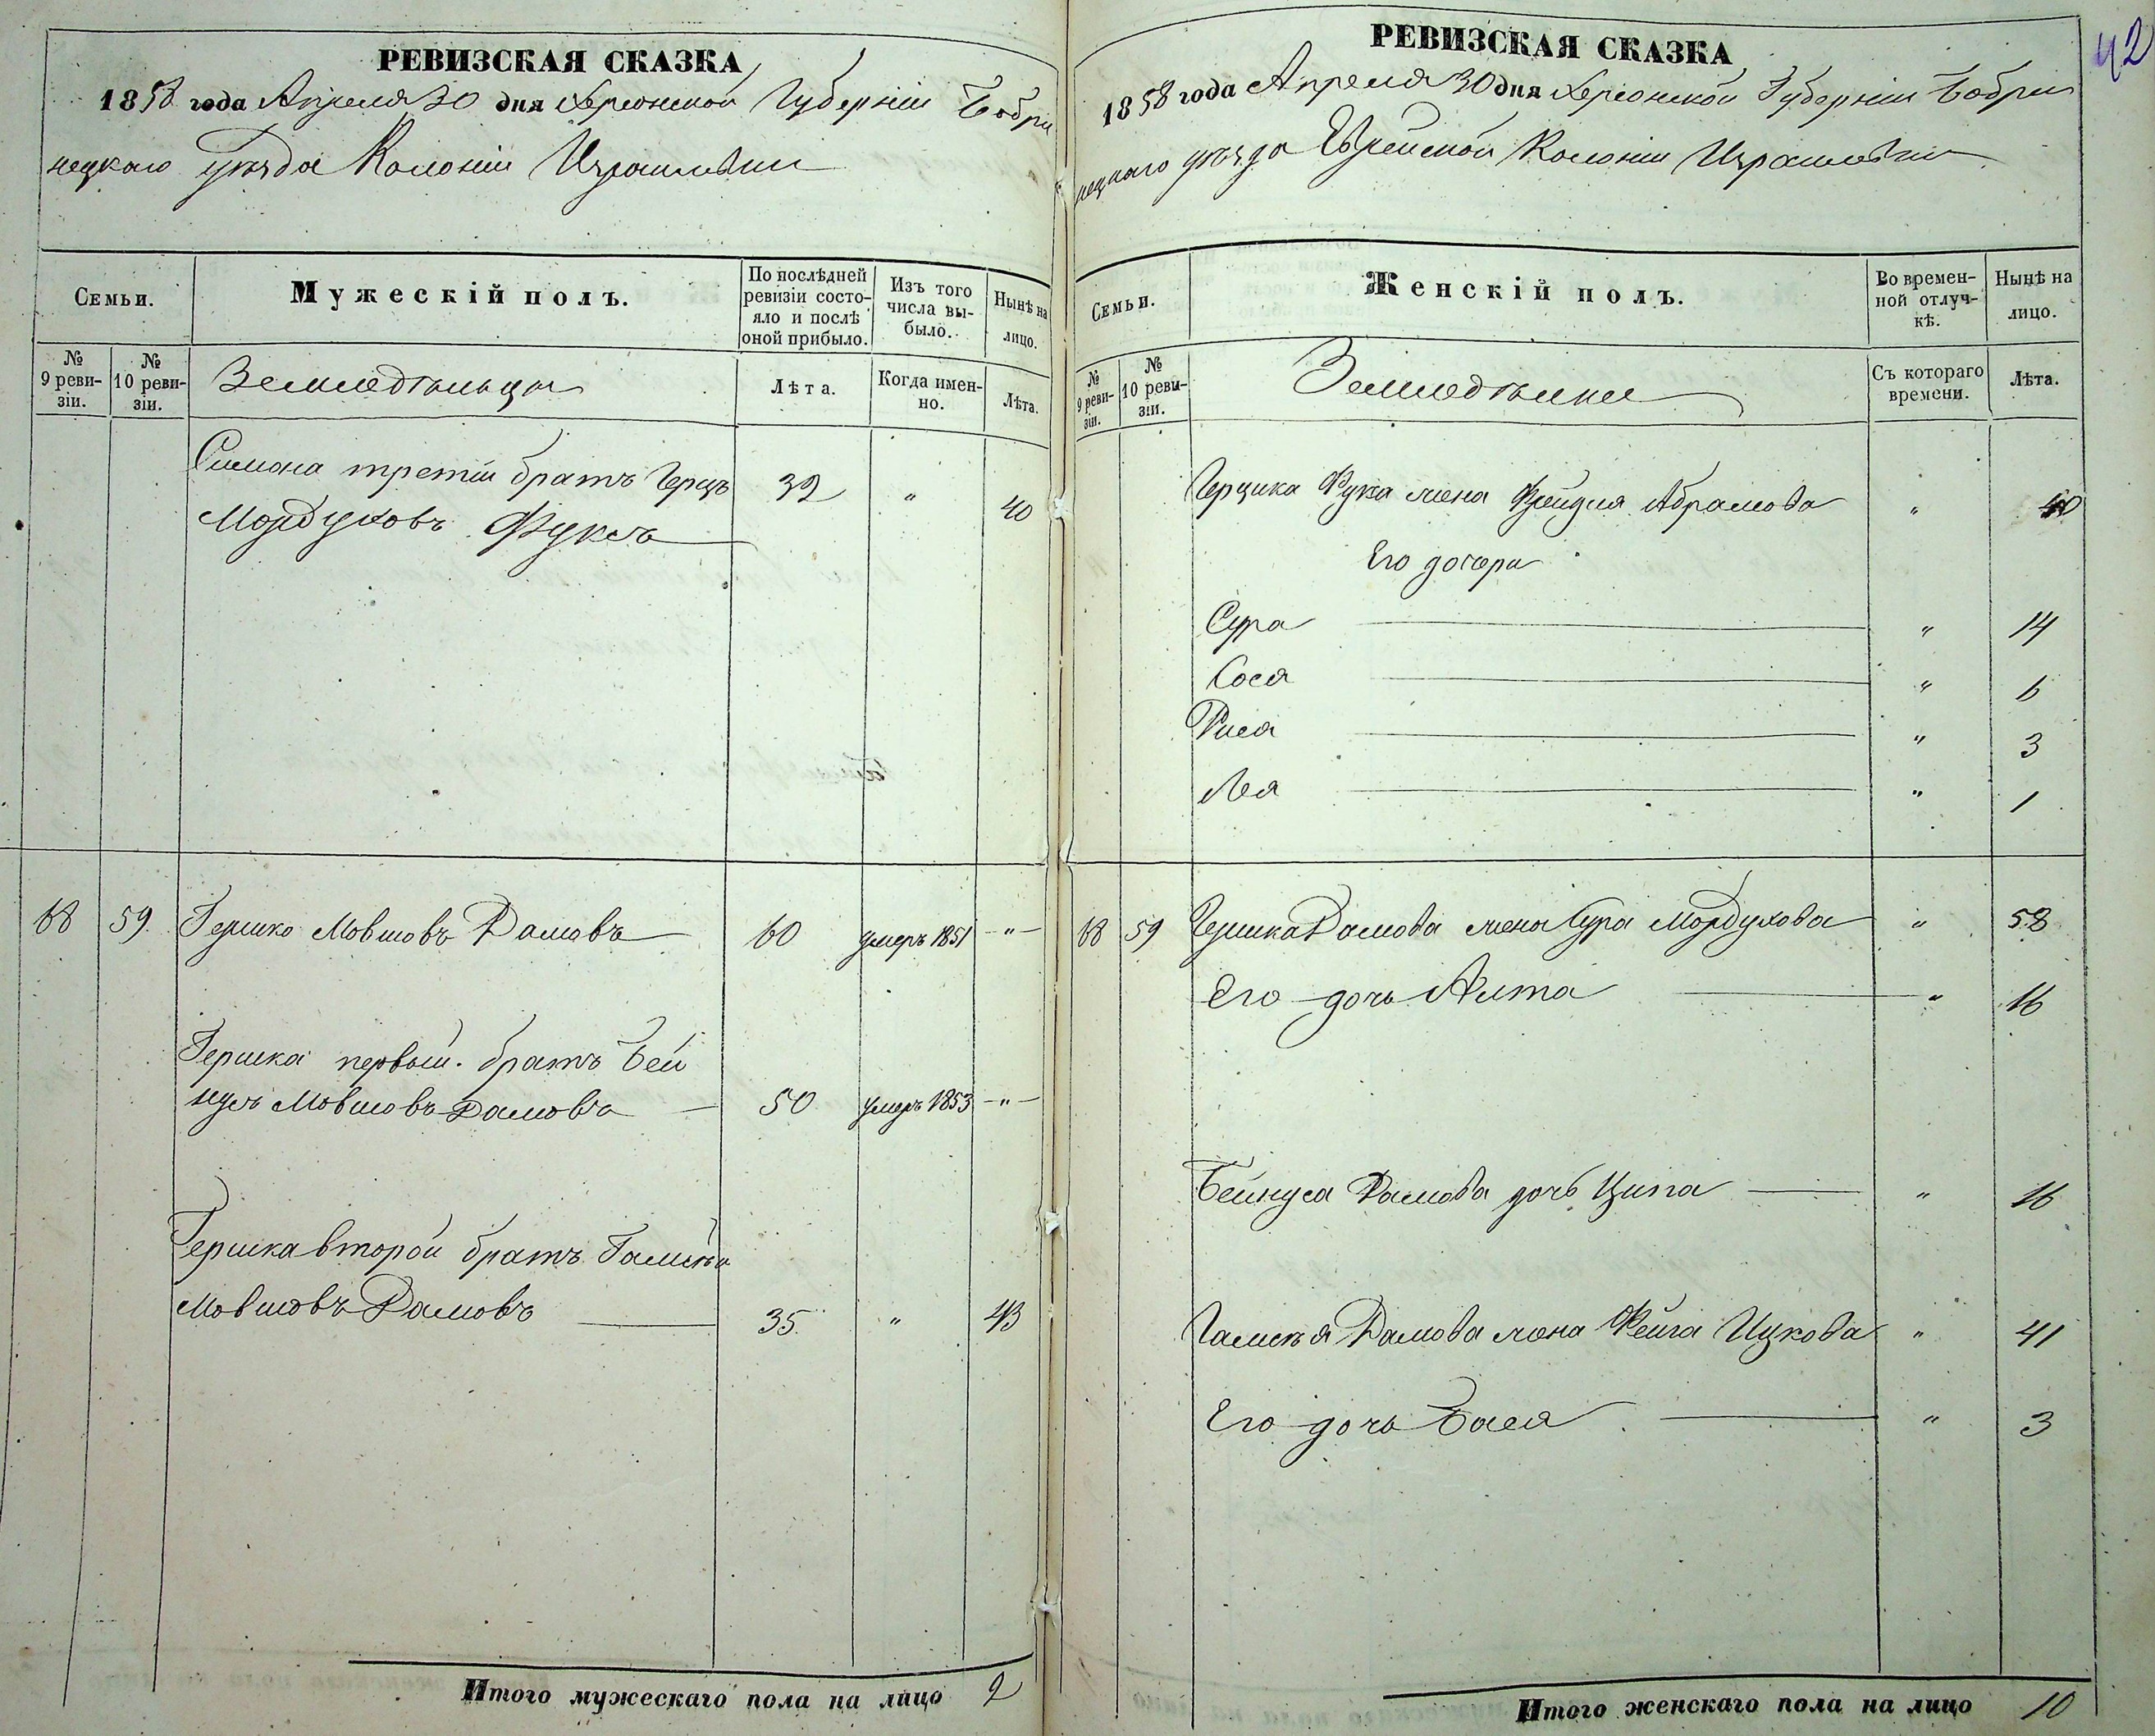 42
РЕВИЗСКАЯ СКАЗКА
1858 года Апреля 30 дня Херсонской Губерніи Бобри
нецкаго уѣзда Колоніи Израилевки
Семьи.
Мужескій полъ.
По послѣдней ревизіи состояло и послѣ оной прибыло.
Изъ того числа выбыло.
Нынѣ на лицо.
№ 9 ревизіи.
№ 10 ревизіи.
Земледѣльцы
Лѣта.
Когда именно.
Лѣта.
Симона третій братъ Герцъ
Мордуховъ Фуксъ 32 " 40
68 59. Гершко Мовшовъ Рамовъ 60 умеръ 1851 "
Гершка первый братъ Бей
нусъ Мовшовъ Рамовъ 50 умеръ 1853 "
Гершка второй братъ
Мовшовъ Рамовъ 35 " 43
Итого мужескаго пола на лицо 2
РЕВИЗСКАЯ СКАЗКА
1858 года Апреля 30 дня Херсонской Губерніи Бобри
нецкаго уѣзда Еврейской Колоніи Израилевки
Семьи.
Женскій полъ.
Во временной отлучкѣ.
Нынѣ на лицо.
№ 9 ревизіи.
№ 10 ревизіи.
Земледѣлки
Съ котораго времени.
Лѣта.
Герцика Фукса жена Фрейдля Абрамова " 40
Его дочери
Сура " 14
Сося " 6
Рися " 3
Лея " 1
68 59 Гершка Рамова жена Сура Мордухова " 58
Его дочь Алта " 16
Бейнуса Рамова дочь Ципа " 16
Рамова жена Фейга Ицкова " 41
Его дочь Бася " 3
Итого женскаго пола на лицо 10